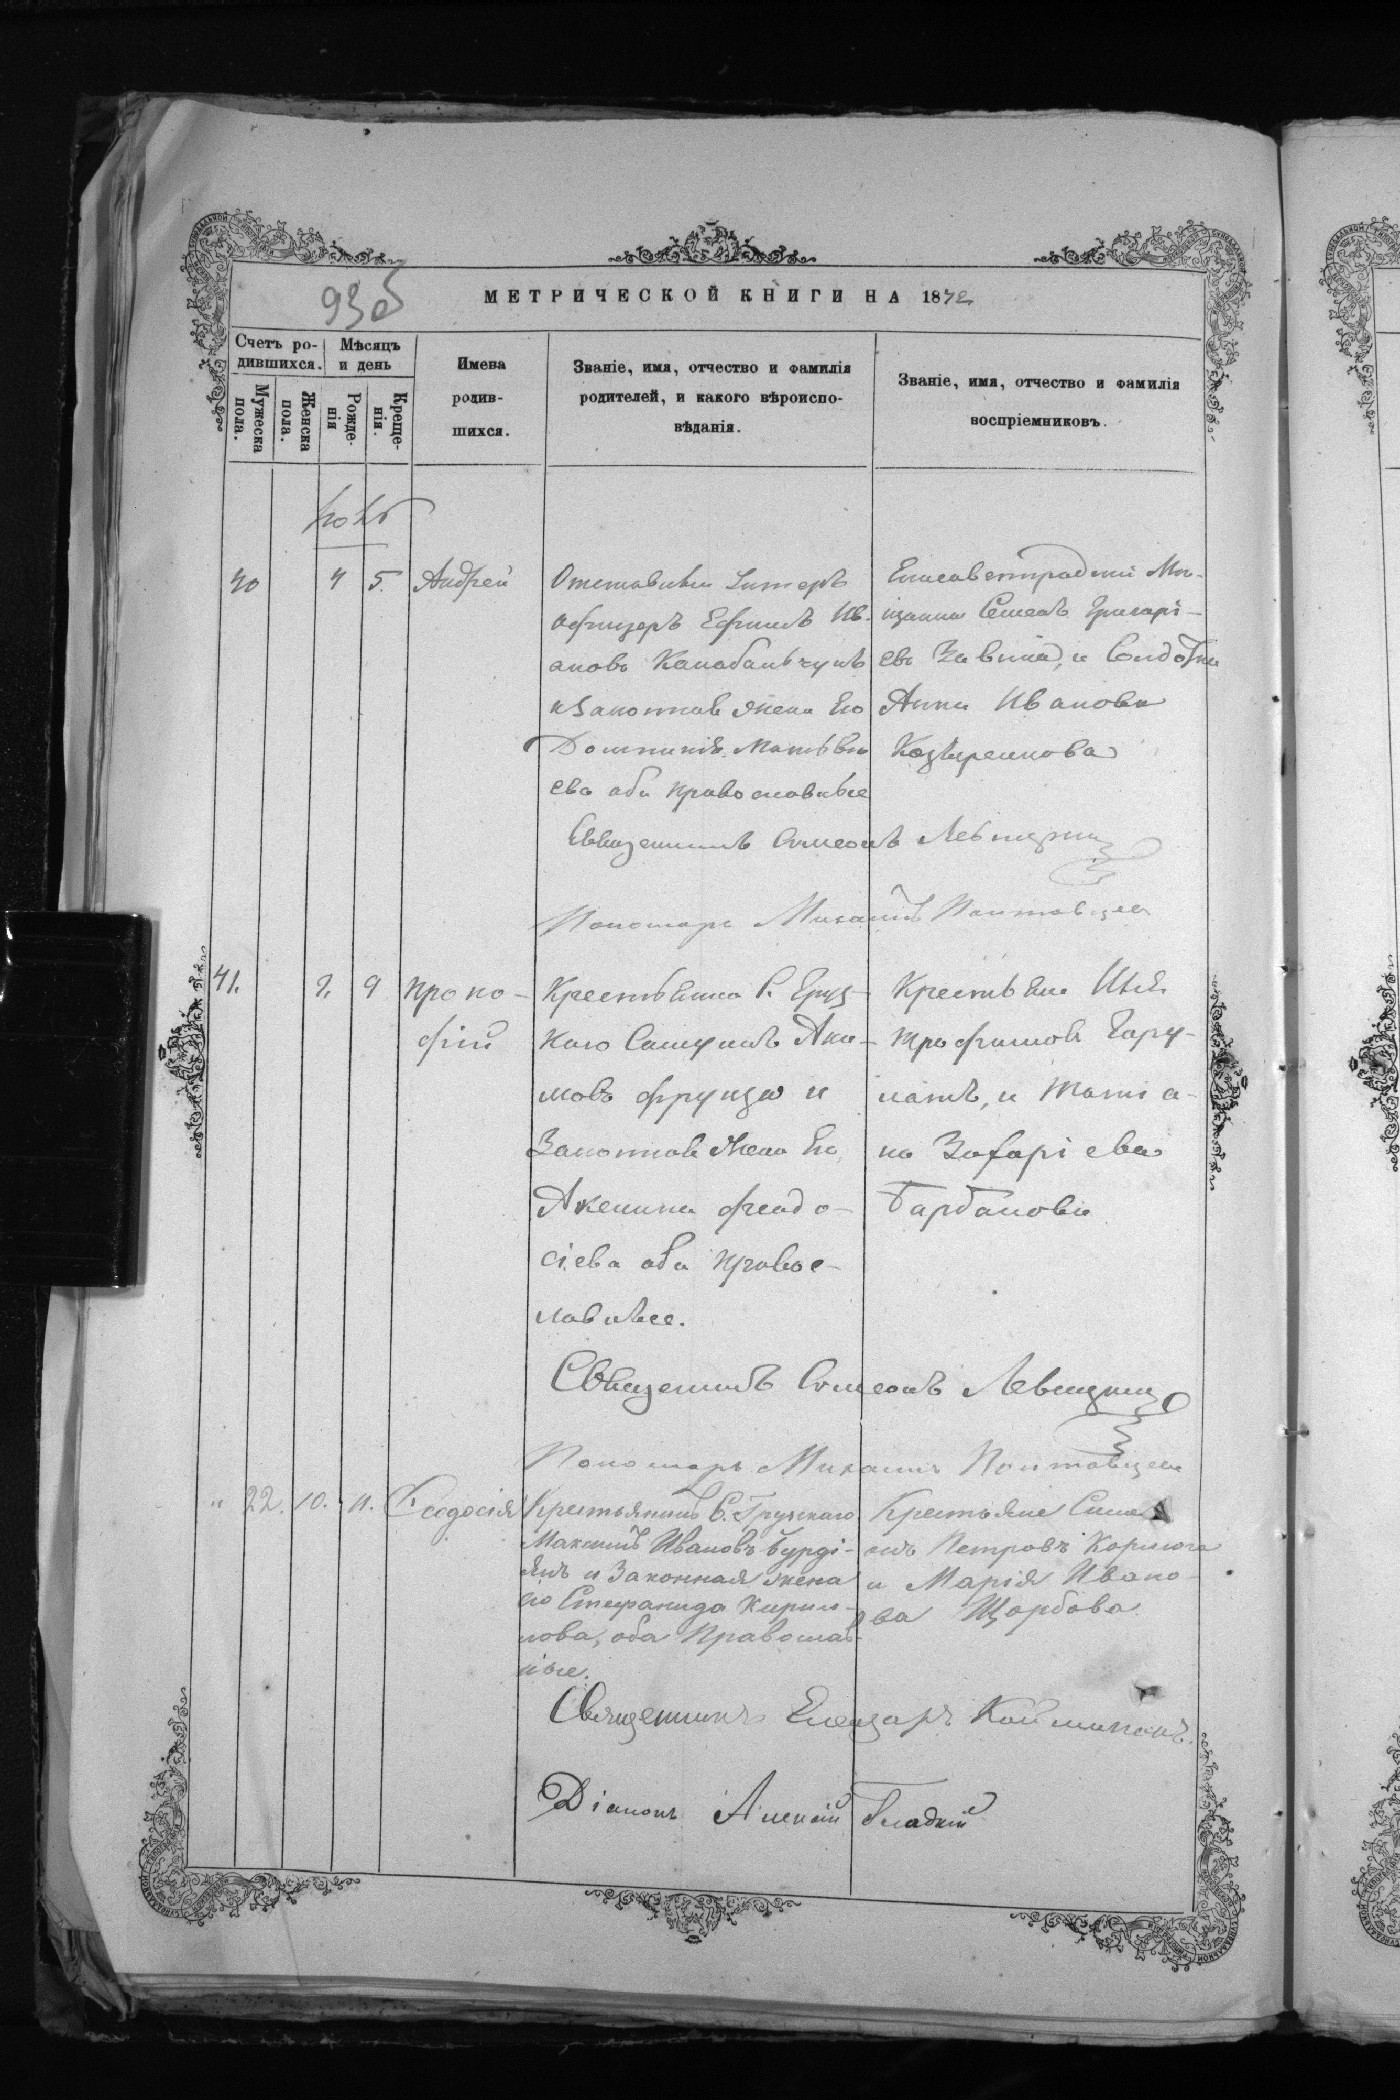 93б
МЕТРИЧЕСКОЙ КНИГИ НА 1872
Счетъ ро-
дившихся.
Мѣсяцъ
и день
Мужеска
пола.
Женска
пола.
Рожде-
нія
Креще-
нія.
Имена
родив-
шихся.
Званіе, имя, отчество и фамилія
родителей, и какого вѣроиспо-
вѣданія.
Званіе, имя, отчество и фамилія
воспріемниковъ.
40 4 5. Андрей
Отставный Унтеръ
офицеръ Ефимъ Ив-
ановъ
законная жена Его
Домникія Матѣѣ
ева оба православные
Елисаветградскій Мѣ-
щанинъ Семенъ Григорі-
евъ и Солдатка
Анна Иванова
Священникъ Симеонъ Левицкій
Пономарь Михаилъ
41. 9 Проко-
фій
Крестьянинъ С. Груз-
каго Самуилъ Яки-
мовъ Фрунза и
Законная Жена Его
Аксинія Феодо-
сіева оба Правос-
лавные.
Крестьяне Илья
Трофимовъ Гару-
натъ, и Татіа-
на Захаріева
Барбанова
Священникъ Симеонъ Левицкій
Пономарь Михаилъ
" 22. 10. 11. Ѳеодосія
Крестьянинъ С. Грузскаго
Максимъ Ивановъ Бурді-
янъ и Законная жена
его Стефанида Кирил-
лова, оба Православ-
ные.
Крестьяне Симе
онъ Петровъ Корнюга
и Марія Ивано-
ва Щорбова
Священникъ Елеазаръ
Діаконъ Алексій Гладкій